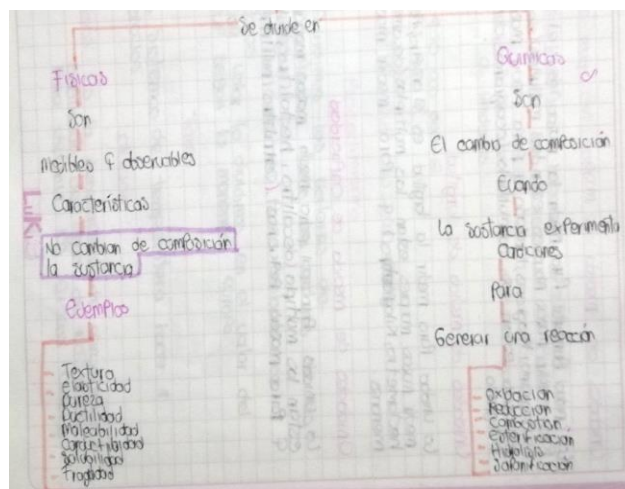 Se divide en
Físicas
Son
medibles y observables
Características
No cambian de composición
la sustancia
Ejemplos
Textura
elasticidad
Dureza
Ductilidad
Maleabilidad
Conductibilidad
Solubilidad
Fragilidad
Químicas
Son
El cambio de composición
Cuando
la sustancia experimenta
Para
Generar una reacción
oxidacion
Reaccion
Combustion
Esterificacion
Hidrolisis
Saponificación
LUK